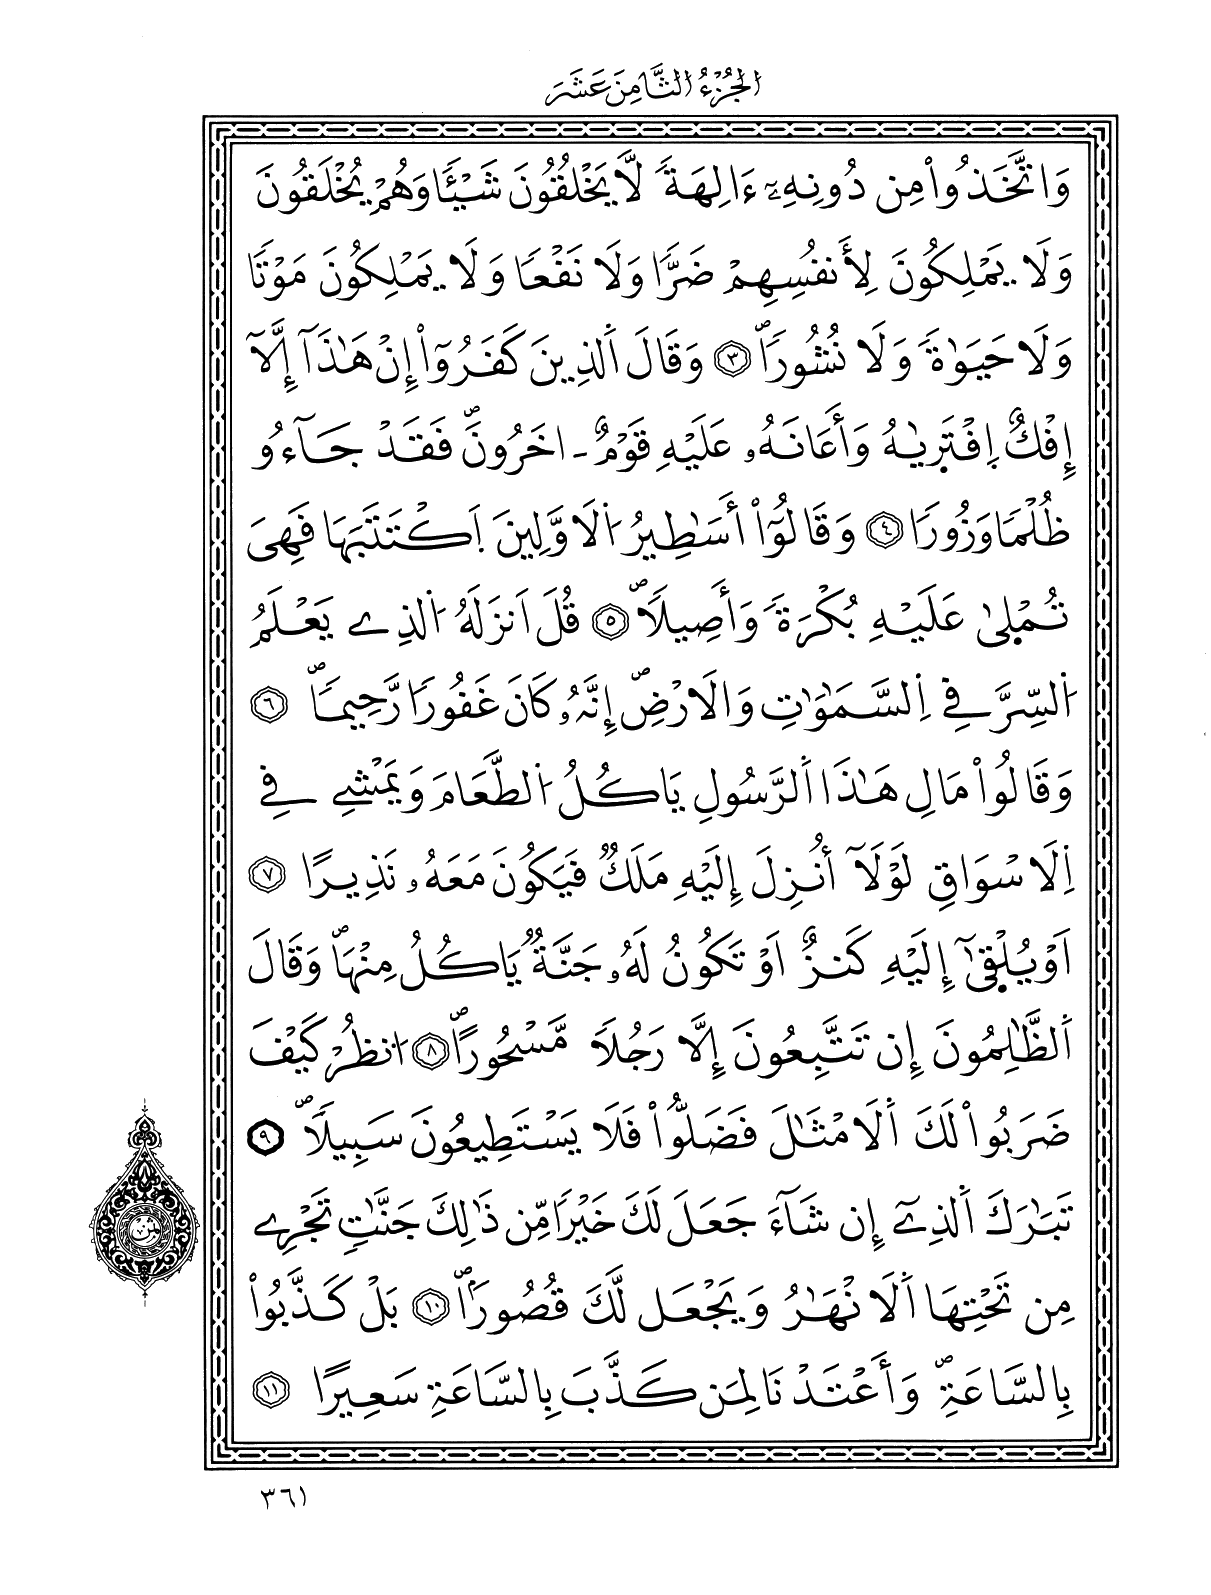 الجُزْءُ الثَّامِنَ عَشَرَ
وَاتَّخَذُواْ مِن دُونِهِۦٓ ءَالِهَةٗ لَّا يَخْلُقُونَ شَيْـٔٗا وَهُمْ يُخْلَقُونَ
وَلَا يَمْلِكُونَ لِأَنفُسِهِمْ ضَرّٗا وَلَا نَفْعٗا وَلَا يَمْلِكُونَ مَوْتٗا
وَلَا حَيَوٰةٗ وَلَا نُشُورٗاۖ ٣ وَقَالَ اَ۬لذِينَ كَفَرُوٓاْ إِنْ هَٰذَآ إِلَّآ
إِفْكٌ اِ۪فْتَر۪يٰهُ وَأَعَانَهُۥ عَلَيْهِ قَوْمٌ ـ اخَرُونَۖ فَقَدْ جَآءُو
ظُلْمٗا وَزُورٗا ٤ وَقَالُوٓاْ أَسَٰطِيرُ اُ۬لَاوَّلِينَ اَ۪كْتَتَبَهَا فَهِيَ
تُمْل۪يٰ عَلَيْهِ بُكْرَةٗ وَأَصِيلٗاۖ ٥ قُلَ اَنزَلَهُ اُ۬لذِے يَعْلَمُ
اُ۬لسِّرَّ فِے اِ۬لسَّمَٰوَٰتِ وَالَارْضِۖ إِنَّهُۥ كَانَ غَفُورٗا رَّحِيمٗاۖ ٦
وَقَالُواْ مَالِ هَٰذَا اَ۬لرَّسُولِ يَاكُلُ اُ۬لطَّعَامَ وَيَمْشِے فِے
اِ۬لَاسْوَاقِ لَوْلَآ أُنزِلَ إِلَيْهِ مَلَكٞ فَيَكُونَ مَعَهُۥ نَذِيرًا ٧
اَوْ يُلْق۪يٰٓ إِلَيْهِ كَنزٌ اَوْ تَكُونُ لَهُۥ جَنَّةٞ يَاكُلُ مِنْهَاۖ وَقَالَ
اَ۬لظَّٰلِمُونَ إِن تَتَّبِعُونَ إِلَّا رَجُلٗا مَّسْحُورًاۖ ٨ اُ۟نظُرْ كَيْفَ
ضَرَبُواْ لَكَ اَ۬لَامْثَٰلَ فَضَلُّواْ فَلَا يَسْتَطِيعُونَ سَبِيلٗاۖ ٩
تَبَٰرَكَ اَ۬لذِےٓ إِن شَآءَ جَعَلَ لَكَ خَيْرٗا مِّن ذَٰلِكَ جَنَّٰتٖ تَجْرِے
مِن تَحْتِهَا اَ۬لَانْهَٰرُ وَيَجْعَل لَّكَ قُصُورٗاۖ ١٠ بَلْ كَذَّبُواْ
بِالسَّاعَةِۖ وَأَعْتَدْنَا لِمَن كَذَّبَ بِالسَّاعَةِ سَعِيرًا ١١
ثمن
٣٦١